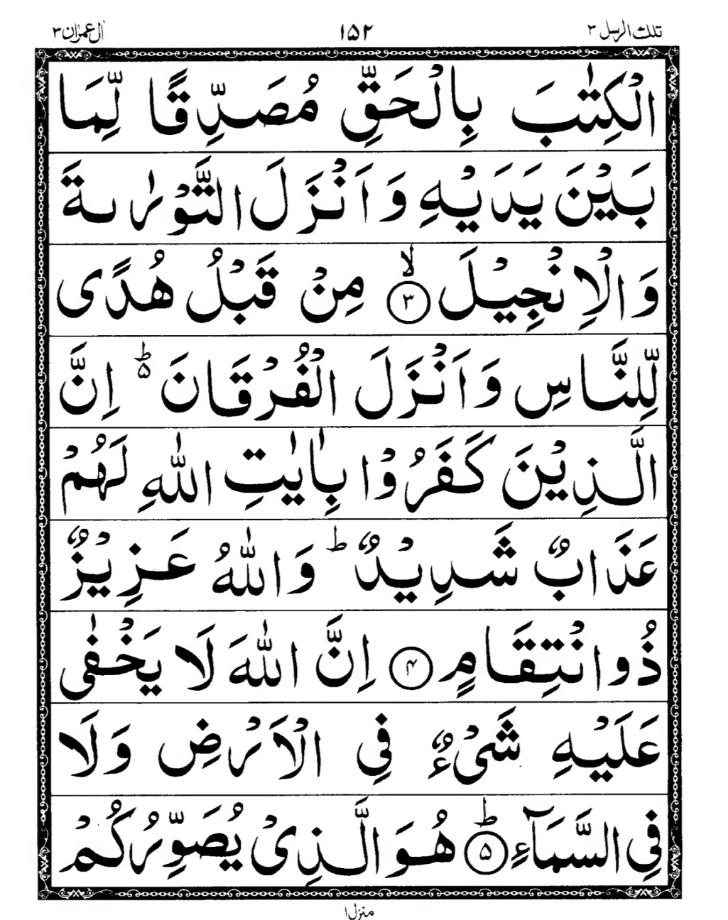 تلك الرسل ٣ ١٥٢ اٰل عمران ٣
الْكِتٰبَ بِالْحَقِّ مُصَدِّقًا لِّمَا
بَيْنَ يَدَيْهِ وَاَنْزَلَ التَّوْرٰىةَ
وَالْاِنْجِيْلَ ۙ‏﴿۳﴾ مِنْ قَبْلُ هُدًى
لِّلنَّاسِ وَاَنْزَلَ الْفُرْقَانَ ؕ۬ اِنَّ
الَّذِيْنَ كَفَرُوْا بِاٰيٰتِ اللّٰهِ لَهُمْ
عَذَابٌ شَدِيْدٌ ؕ وَاللّٰهُ عَزِيْزٌ
ذُو انْتِقَامٍ ﴿۴﴾ اِنَّ اللّٰهَ لَا يَخْفٰى
عَلَيْهِ شَىْءٌ فِى الْاَرْضِ وَلَا
فِى السَّمَآءِ ؕ‏﴿۵﴾ هُوَ الَّذِىْ يُصَوِّرُكُمْ
منزل ١